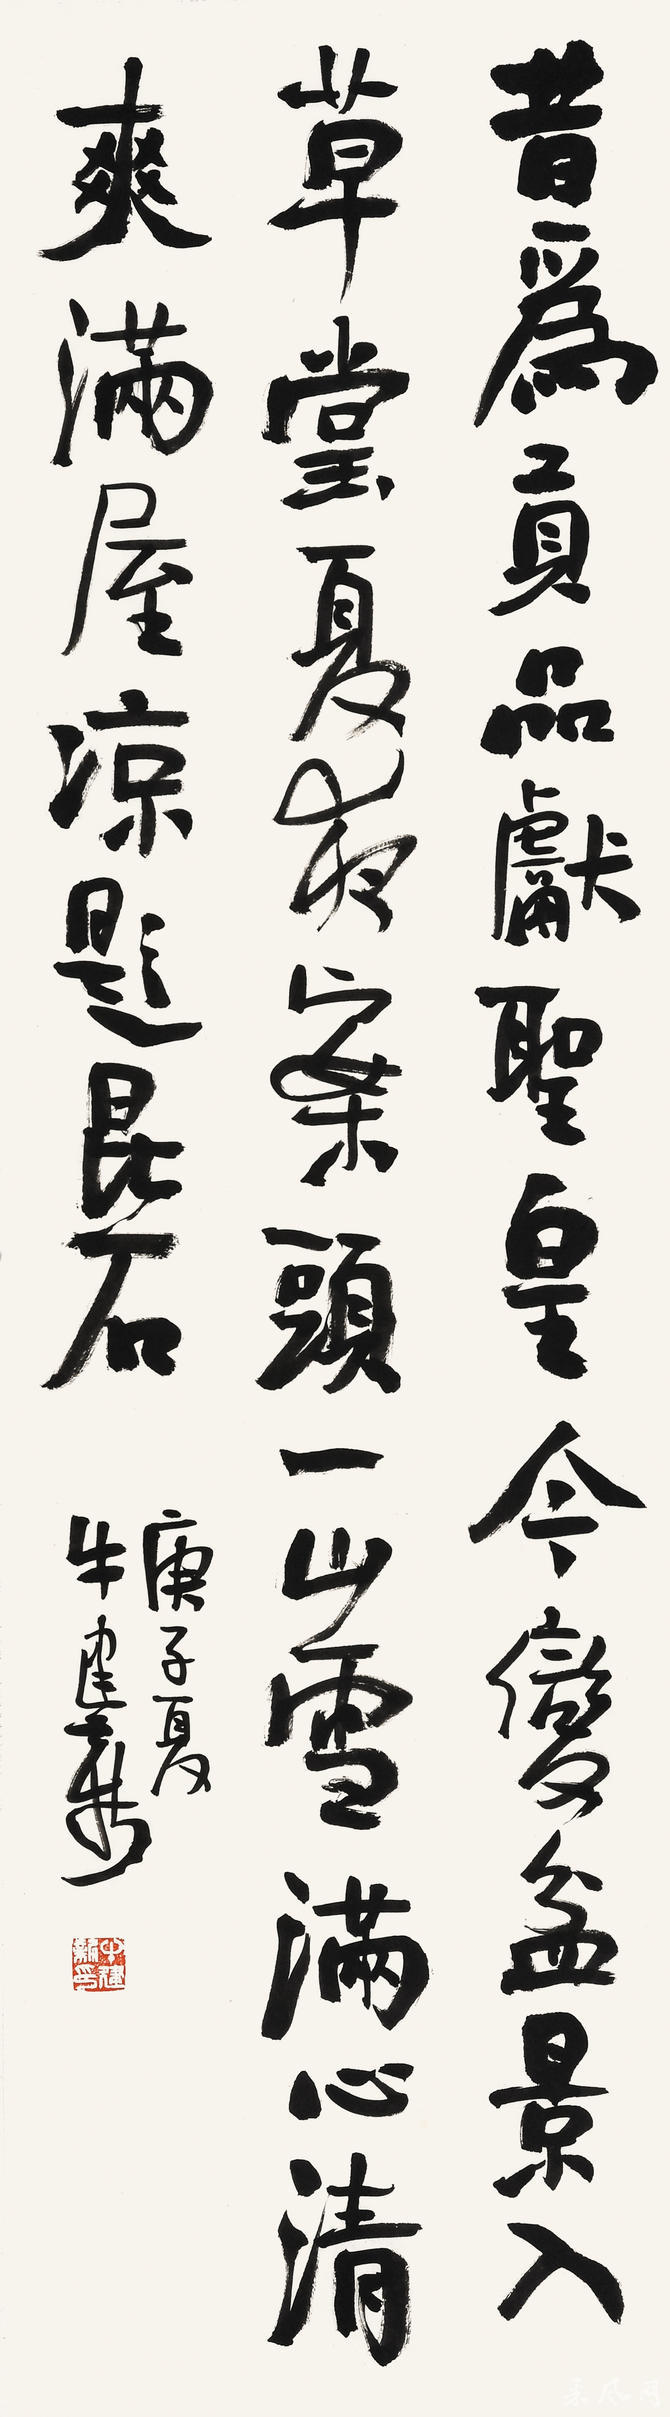 昔爲真品獻聖皇今變盆景入
草堂夏夜案頭一山雪滿心清
爽滿屋凉題昆石
庚子夏
牛建
采风网